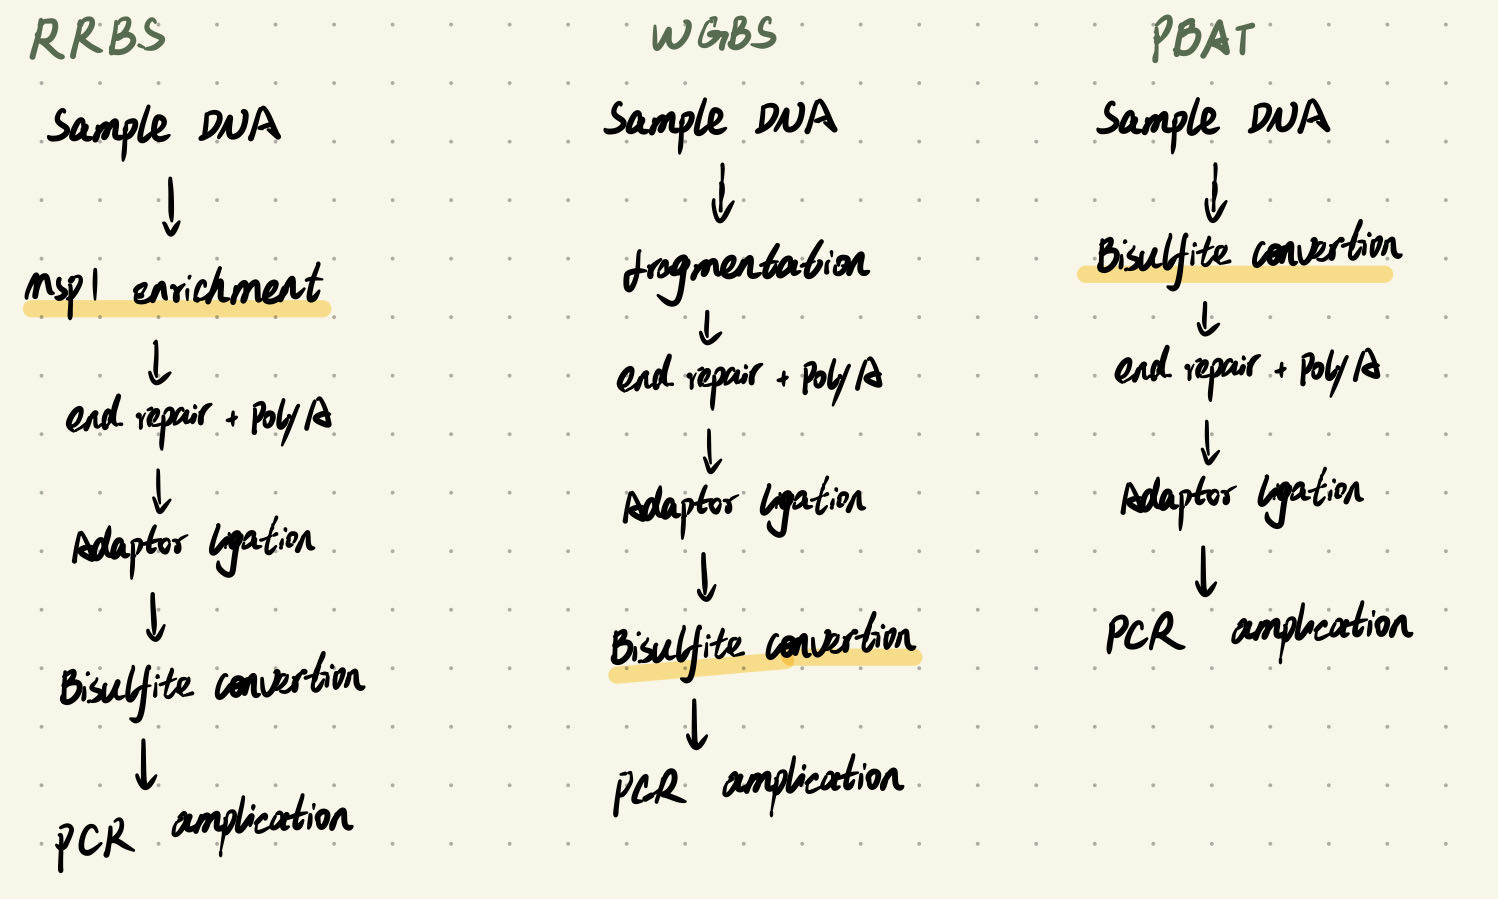 RRBS
Sample DNA
msp1 enrichment
end repair + Poly A
Adaptor ligation
Bisulfite convertion
PCR amplication
WGBS
Sample DNA
fragmentation
end repair + Poly A
Adaptor ligation
Bisulfite convertion
PCR amplication
PBAT
Sample DNA
Bisulfite convertion
end repair + Poly A
Adaptor ligation
PCR amplication